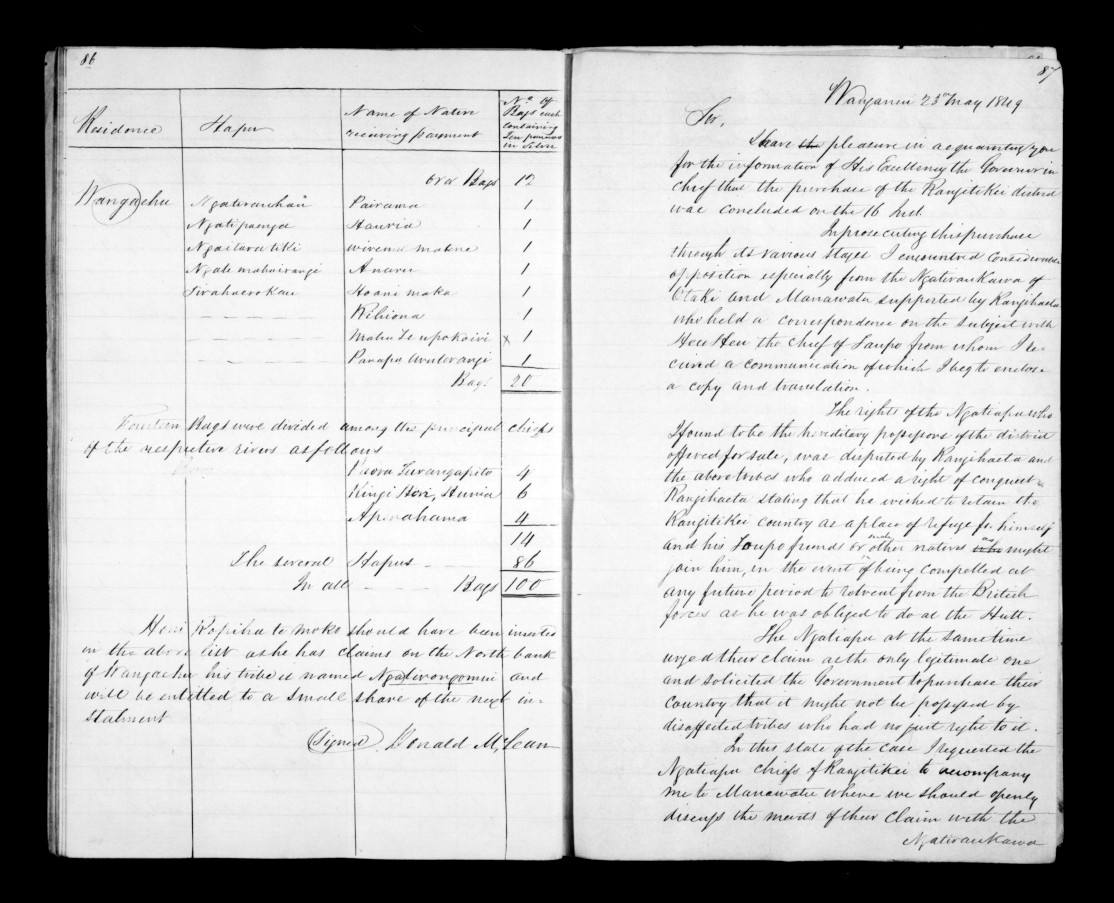 86
Residence Hapu Name of Native receiving payment No. of Bags each containing Ten pounds in Silver
over Bags 12
Wangaehu Ngatirauhau Pairama 1
Ngatipaenga Hauria 1
Ngaitaratiki wiremu matene 1
Ngati mahairangi Anaru 1
Tirahaerokau Hoani maka 1
Kibiona 1
Matiu Te upokoiri x 1
Parapa Avaterangi 1
Bags 20
Fourteen Bags were divided among the principal chiefs
of the respective rivers as follows
Paora Turangapito 4
Kingi Hori, Hunia 6
Aperahama 4
14
The several Hapus 86
In all Bags 100
Honi Ropiha te moko should have been inserted
in the above list as he has claims on the North bank
of Wangaehu his tribe is named Ngatirongomui and
will be entitled to a small share of the next in-
stalment
(Signed) Donald McLean
87
Wanganui 23rd May 1849
Sir,
I have the pleasure in acquainting you
for the information of His Excellency the Governor in
Chief that the purchase of the Rangitikei district
was concluded on the 16 Inst.
In prosecuting this purchase
through its various stages I encountred considerable
oposition especially from the Ngatiraukawa of
Otaki and Manawatu supported by Rangihaeta
who held a correspondence on the subject with
Heu Heu the Chief of Taupo from whom I re-
cieved a communication of which I beg to enclose
a copy and translation.
The rights of the Ngatiapa who
I found to be the hereditary possessors of the district
offered for sale, was disputed by Rangihaeta and
the above tribes who adduced a right of conquest
Rangihaeta stating that he wished to retain the
Rangitikei country as a place of refuge for himself
and his Toupo friends or other natives who as might
join him, in the event of being compelled at
any future period to retreat from the British
forces as he was obliged to do at the Hutt.
The Ngatiapa at the same time
urged their claim as the only legitimate one
and solicited the Government to purchase their
country that it might not be possessed by
disaffected tribes who had no just right to it.
In this state of the case I requested the
Ngatiapa chiefs of Rangitikei to accompany
me to Manawatu where we should openly
discuss the merits of their claim with the
Ngatiraukawa